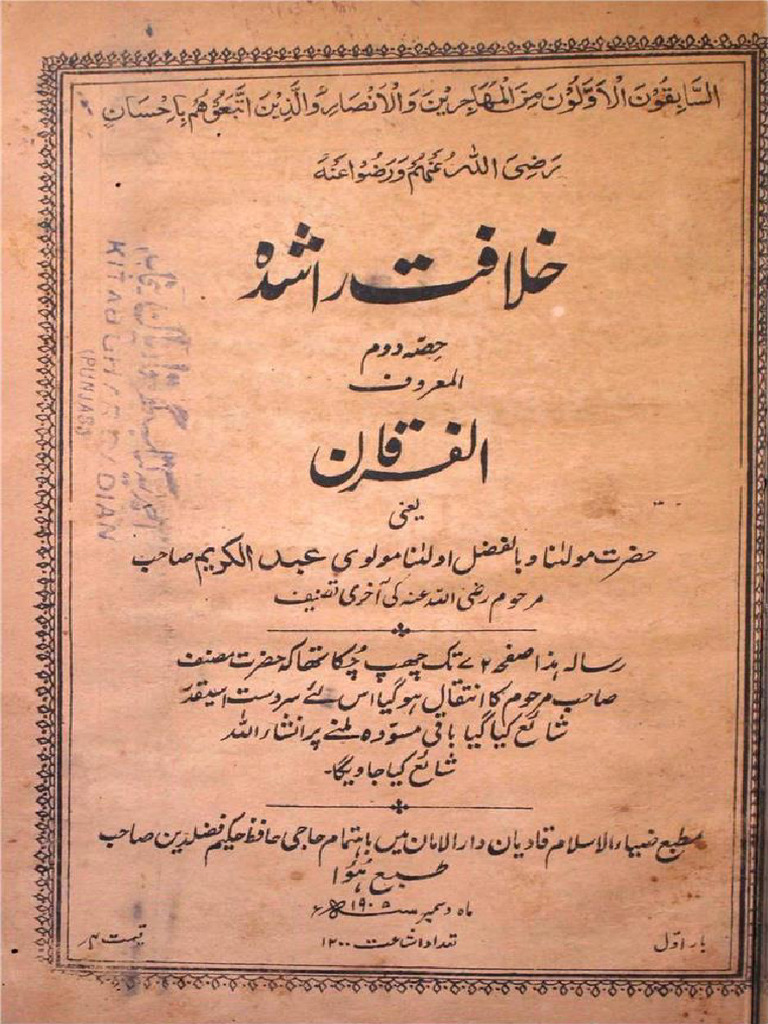 السَّابِقُوْنَ الْاَوَّلُوْنَ مِنَ الْمُهَاجِرِيْنَ وَالْاَنْصَارِ وَالَّذِيْنَ اتَّبَعُوْهُمْ بِاِحْسَانٍ
رَضِىَ اللّٰهُ عَنْهُمْ وَرَضُوْا عَنْهُ
خلافت راشدہ
حصہ دوم
المعروف
الفرقان
یعنی
حضرت مولٰنا و بالفضل اولٰنا مولوی عبد الکریم صاحب
مرحوم رضی اللہ عنہ کی آخری تصنیف
رسالہ ہذا صفحہ ۷۲ تک چھپ چُکا تھا کہ حضرت مصنف
صاحب مرحوم کا انتقال ہو گیا اس لئے سردست اسیقدر
شائع کیا گیا باقی مسوّدہ ملنے پر انشاء اللہ
شائع کیا جاویگا۔
مطبع ضیاء الاسلام قادیان دار الامان میں باہتمام حاجی حافظ حکیم فضلدین صاحب
طبع ہُوا
ماہ دسمبر ۱۹۰۵ء
بار اوّل
تعداد اشاعت ۱۲۰۰
قیمت ۴؍
KITAB GHAR
DIAN
(PUNJAB)